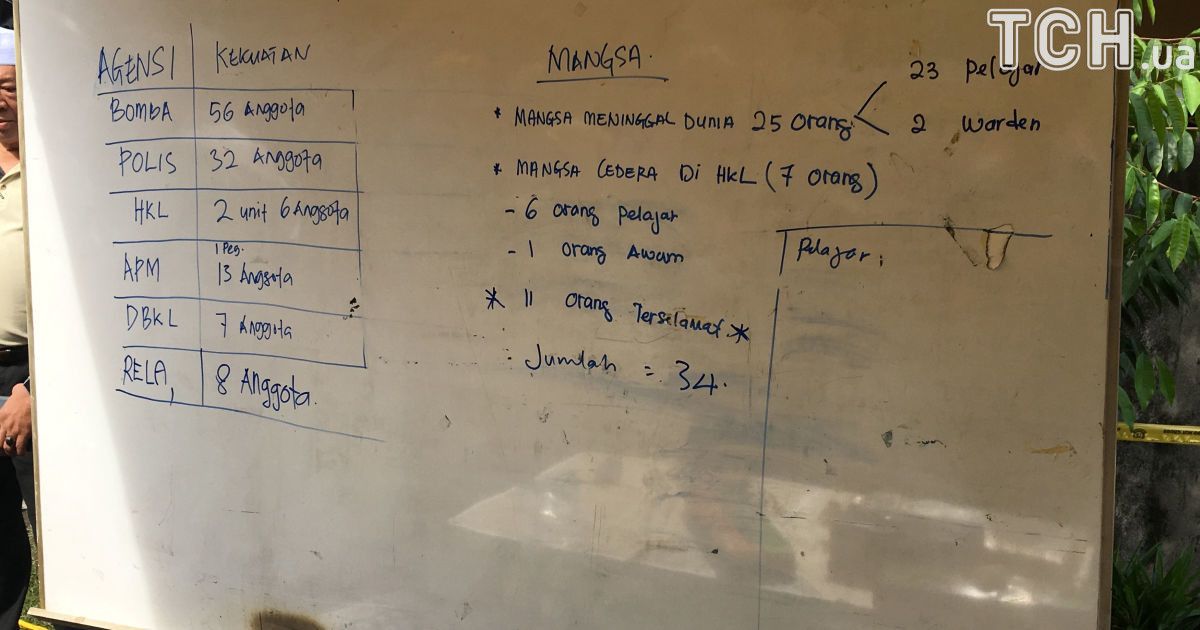 TCH.ua
AGENSI KEKUATAN
BOMBA 56 Anggota
POLIS 32 Anggota
HKL 2 unit 6 Anggota
1 Peg.
APM 13 Anggota
DBKL 7 Anggota
RELA, 8 Anggota.
MANGSA.
23 Pelajar
* MANGSA MENINGGAL DUNIA 25 Orang
2 Warden
* MANGSA CEDERA Di HKL (7 Orang)
- 6 orang pelajar
- 1 orang Awam
* 11 orang Terselamat. *
Jumlah = 34.
Pelajar ;